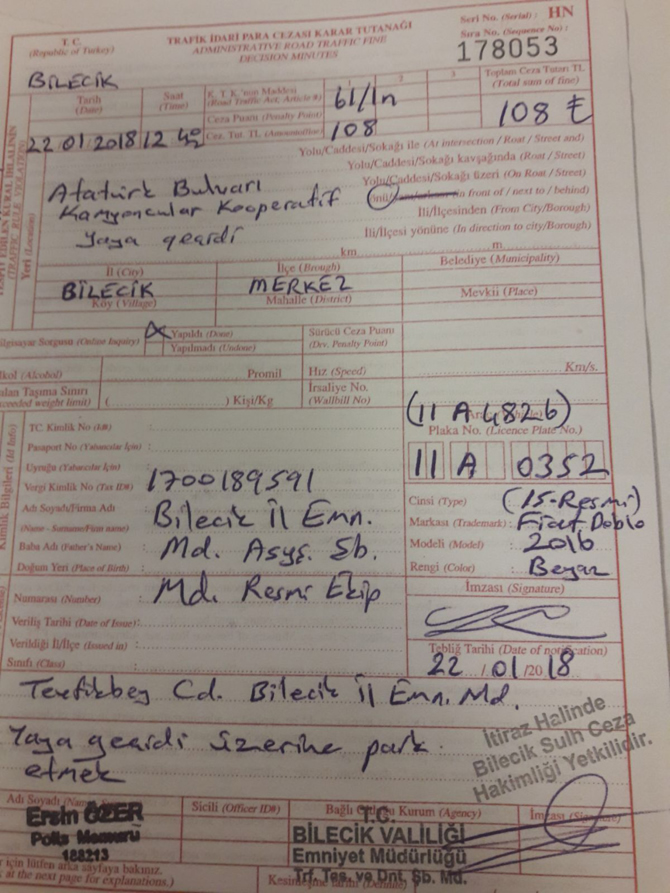 T. C.
(Republic of Turkey)
TRAFİK İDARİ PARA CEZASI KARAR TUTANAĞI
ADMINISTRATIVE ROAD TRAFFIC FINE
DECISION MINUTES
Seri No. (Serial) : HN
Sıra No. (Sequence No) :
178053
BİLECİK
Tarih
(Date)
Saat
(Time)
K. T. K.'nın Maddesi
(Road Traffic Act, Article #)
61/1n
2
3
Toplam Ceza Tutarı TL
(Total sum of fine)
Ceza Puanı (Penalty Point)
108 ₺
22 01 2018
12 40
Cez. Tut. TL
108
Yolu/Caddesi/Sokağı ile (At intersection / Roat / Street and)
Yolu/Caddesi/Sokağı kavşağında (Roat / Street)
Yolu/Caddesi/Sokağı üzeri (On Roat / Street)
Önü in front of / next to / behind)
İli/İlçesinden (From City/Borough)
İli/İlçesi yönüne (In direction to city/Borough)
Atatürk Bulvarı
Kamyoncular Kooperatif
Yaya geçidi
Yeri (Location)
km
m
İl (City)
İlçe (Brough)
Belediye (Municipality)
BİLECİK
MERKEZ
Köy (Village)
Mahalle (District)
Mevkii (Place)
Bilgisayar Sorgusu (Online Inquiry)
X Yapıldı (Done)
Yapılmadı (Undone)
Sürücü Ceza Puanı
(Drv. Penalty Point)
(Alcohol)
Promil
Hız (Speed)
Km/s.
Taşıma Sınırı
weight limit)
( ) Kişi/Kg
İrsaliye No.
(Wallbill No)
(11 A 4826)
Plaka No. (Licence Plate No.)
11 A 0352
TC Kimlik No (Id#) :
Pasaport No (Yabancılar İçin) :
Uyruğu (Yabancılar İçin) :
Vergi Kimlik No (Tax ID#) : 1700189591
Adı Soyadı/Firma Adı : Bilecik İl Emn.
(Name - Surname/Firm name)
Baba Adı (Father's Name) : Md. Asyş. Şb.
Doğum Yeri (Place of Birth) :
Cinsi (Type) : (15-Resmi)
Markası (Trademark) : Fiat Doblo
Modeli (Model) : 2016
Rengi (Color) : Beyaz
Numarası (Number) : Md. Resmi Ekip
Veriliş Tarihi (Date of Issue) :
Verildiği İl/İlçe (Issued in) :
Sınıfı (Class) :
İmzası (Signature)
Tebliğ Tarihi (Date of notification)
22 / 01 /2018
Tevfikbey Cd. Bilecik İl Emn. Md.
Yaya geçidi üzerine park
etmek
İtiraz Halinde
Bilecik Sulh Ceza
Hakimliği Yetkilidir.
Adı Soyadı
Sicili (Officer ID#)
Bağlı Kurum (Agency)
İmzası (Signature)
Ersin ÖZER
Polis Memuru
188213
T.C.
BİLECİK VALİLİĞİ
Emniyet Müdürlüğü
Trf. Tes. ve Dnt. Şb. Md.
için lütfen arka sayfaya bakınız.
at the next page for explanations.)